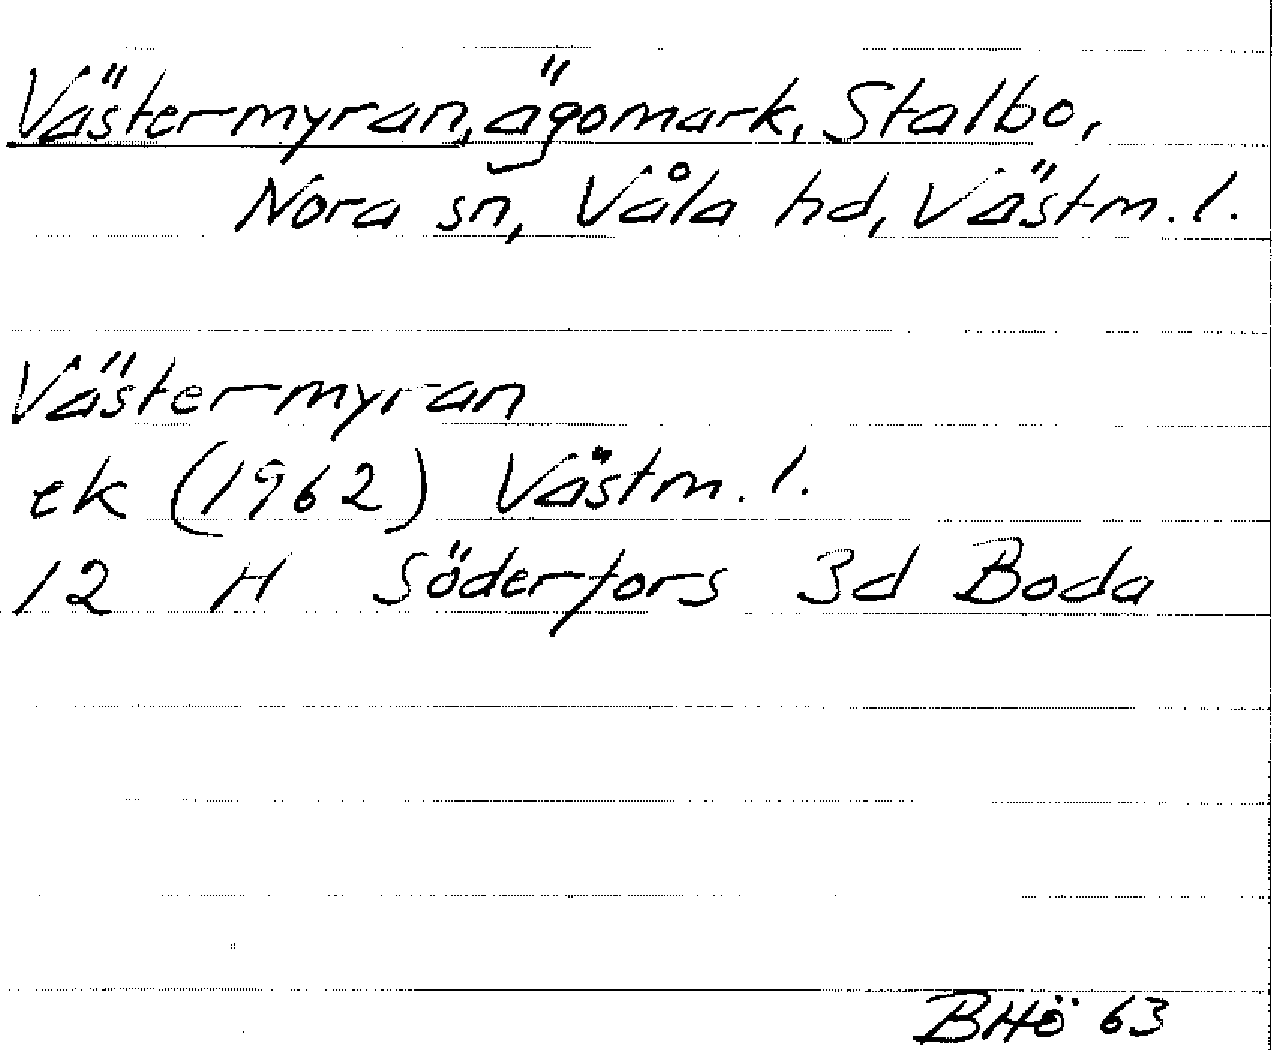 Västermyran, ägomark, Stalbo,
Nora sn, Våla hd, Västm. l.
Västermyran
ek (1962) Västm. l.
12 H Söderfors 3d Boda
BHö 63